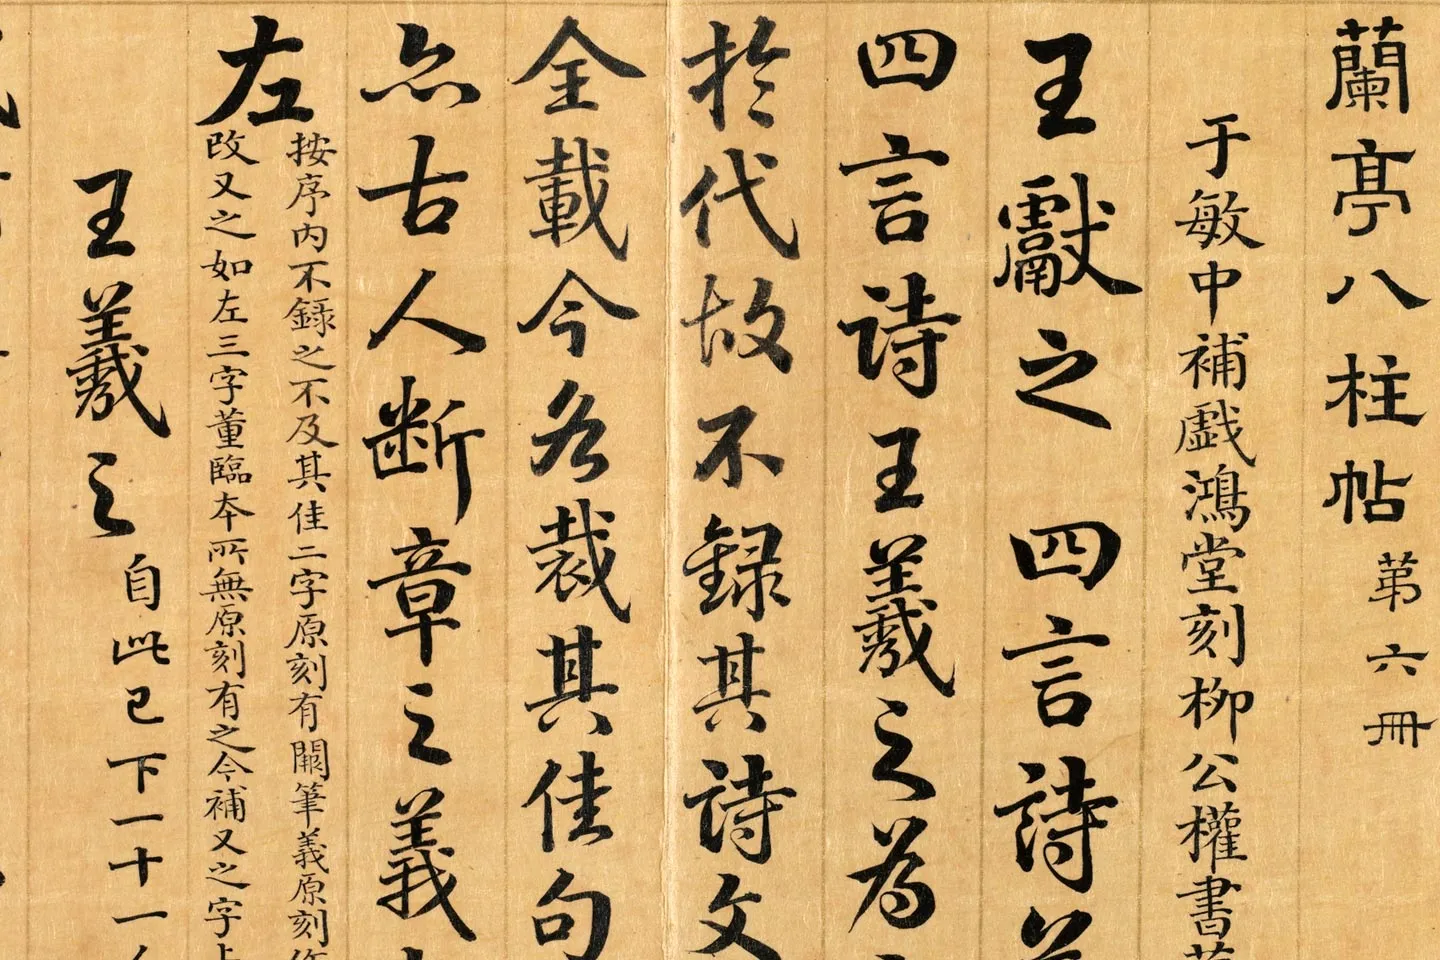 蘭亭八柱帖第六冊
于敏中補戲鴻堂刻柳公權書蘭
王獻之四言詩并
四言詩王羲之為
於代故不録其詩文
全載今各裁其佳句
亦古人断章之義
按序内不録之不及其佳二字原刻有闕筆義原刻作
左
改又之如左三字董臨本所無原刻有之今補又之字上
王羲之自此已下一十一人